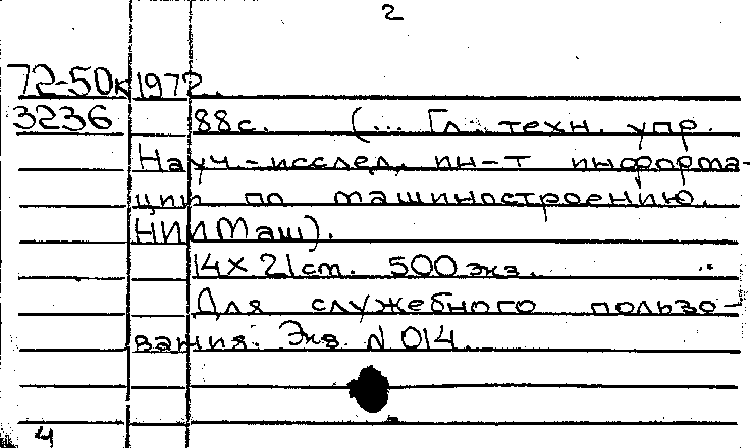 2
72-50к 1972.
3236 88с. (... Гл. техн. упр.
Науч.-исслед. ин-т информа-
ции по машиностроению.
НИИМаш).
14х21см. 500 экз.
Для служебного пользо-
вания. Экз. N 014.
4